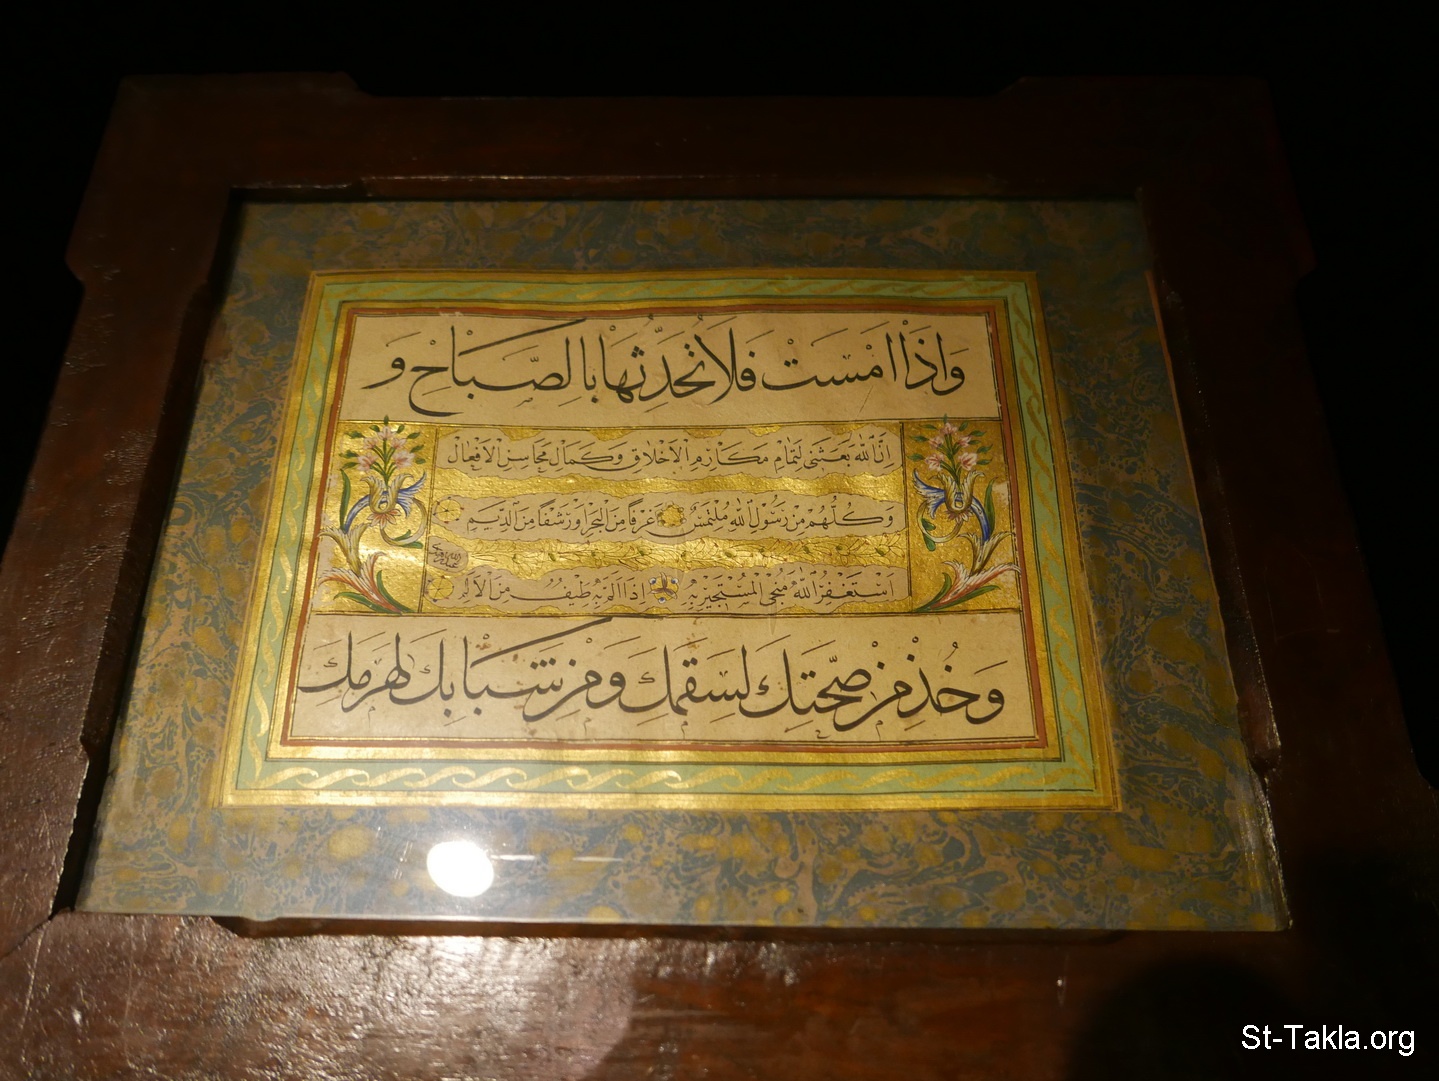 وَاِذَا اَمْسَتْ فَلَا تُحَدِّثْهَا بِالصَّبَاحِ وَ
اِنَّ اللهَ بَعَثَنِي لِتَمَامِ مَكَارِمِ الْاَخْلَاقِ وَكَمَالِ مَحَاسِنِ الْاَفْعَالِ
وَكُلُّهُمْ مِنْ رَسُولِ اللهِ مُلْتَمِسٌ غَرْفًا مِنَ الْبَحْرِ اَوْ رَشْفًا مِنَ الدِّيَمِ
اَسْتَغْفِرُ اللهَ مُنْجِي الْمُسْتَجِيرِ بِهِ اِذَا اَلَمَّ بِهِ طَيْفٌ مِنَ الْاَلَمِ
وَخُذْ مِنْ صِحَّتِكَ لِسَقَمِكَ وَمِنْ شَبَابِكَ لِهَرَمِكَ
St-Takla.org